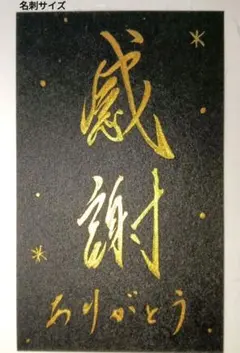 名刺サイズ
感謝
ありがとう